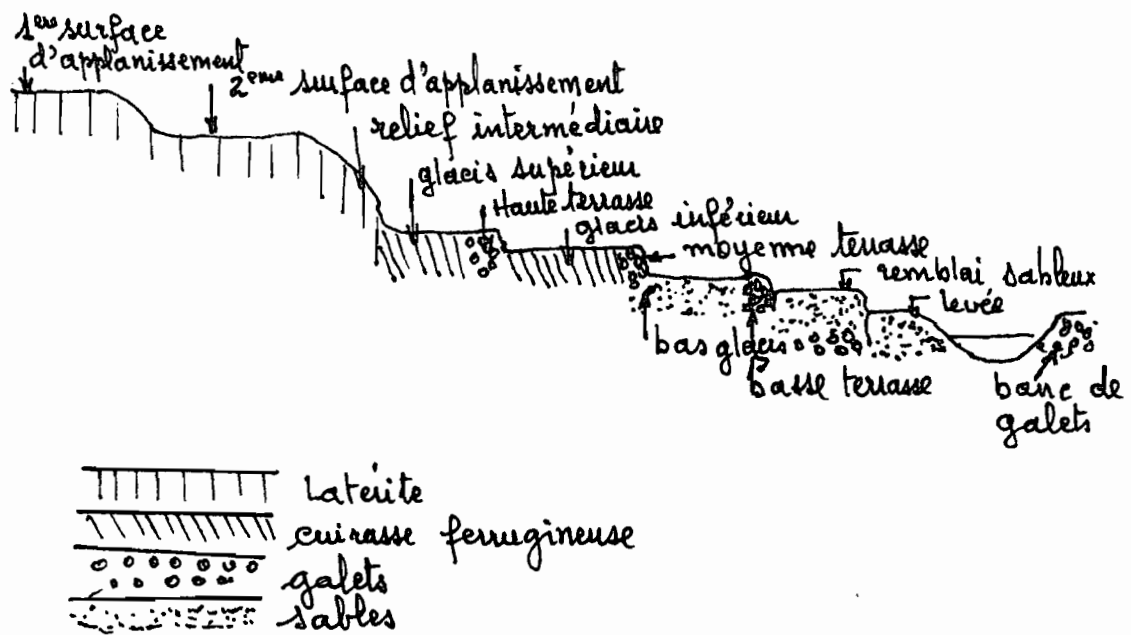 1ère surface
d'applanissement
2ème surface d'applanissement
relief intermédiaire
glacis supérieur
Haute terrasse
glacis inférieur
moyenne terrasse
remblai sableux
levée
bas glacis
basse terrasse
banc de
galets
Latérite
cuirasse ferrugineuse
galets
sables